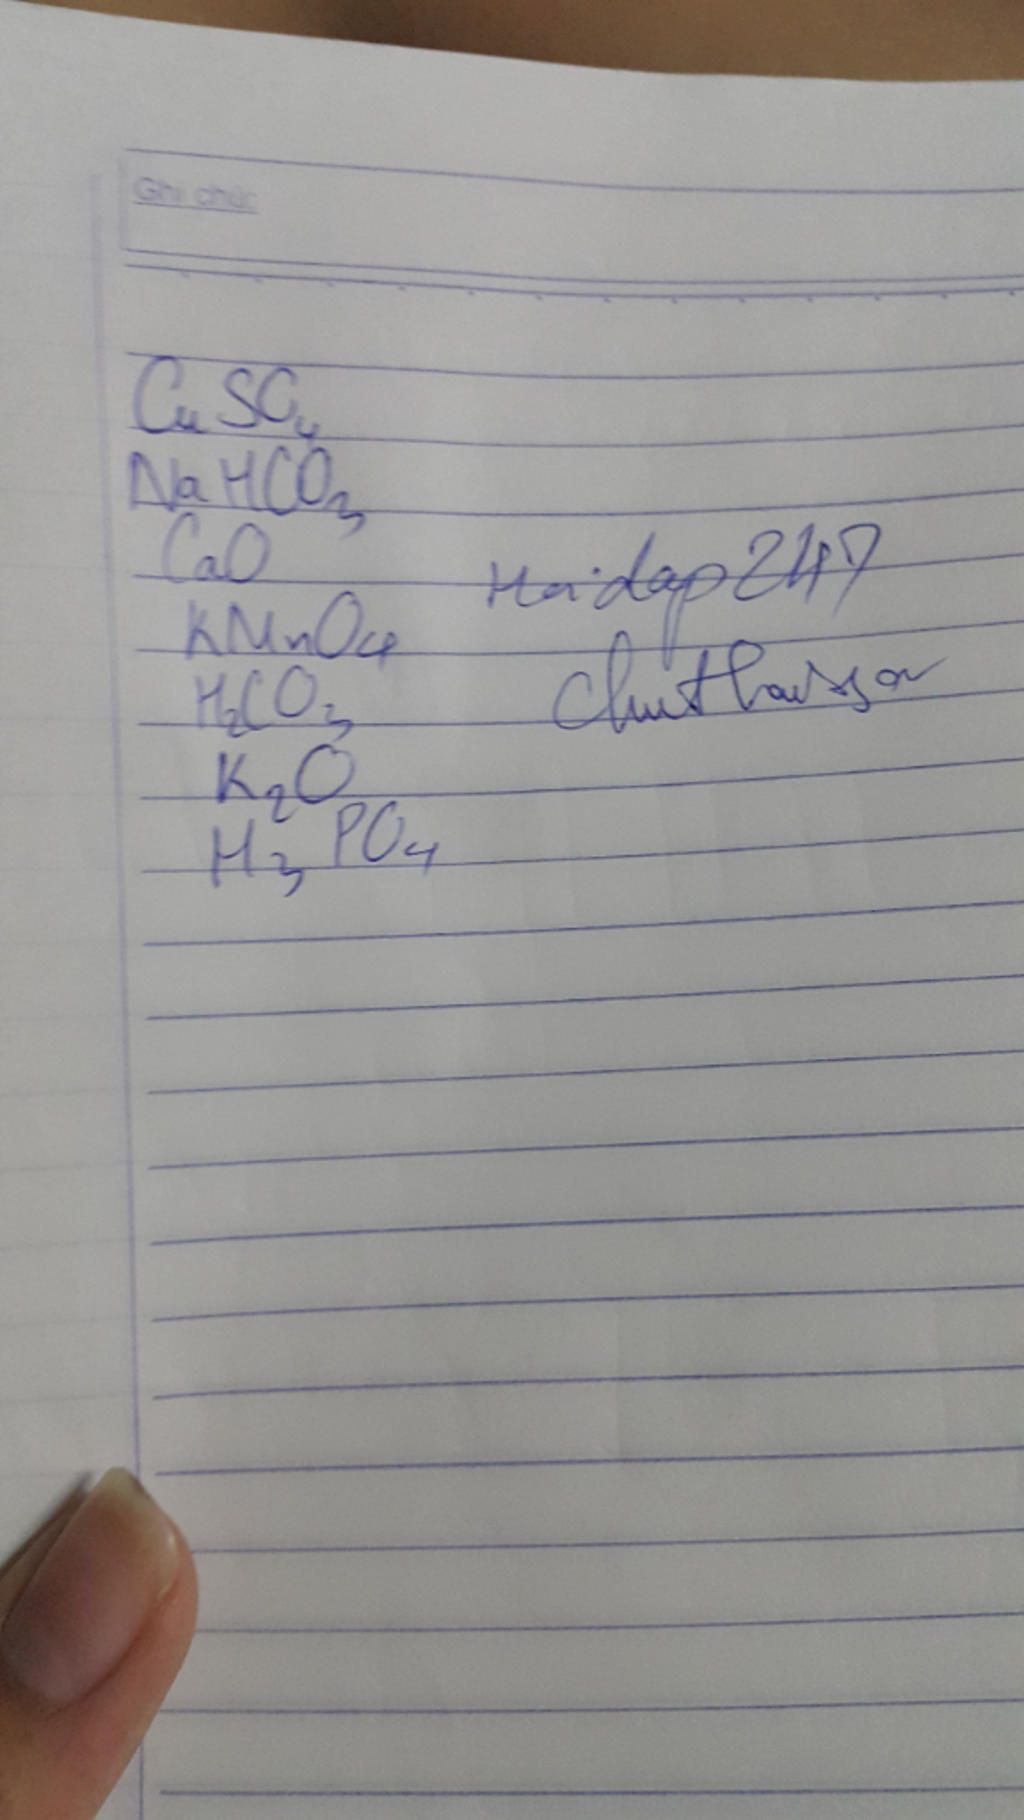 Ghi chú:
CuSO4
NaHCO3
CaO
KMnO4
H2CO3
K2O
H3PO4
Hoidap247
Chuthaisson